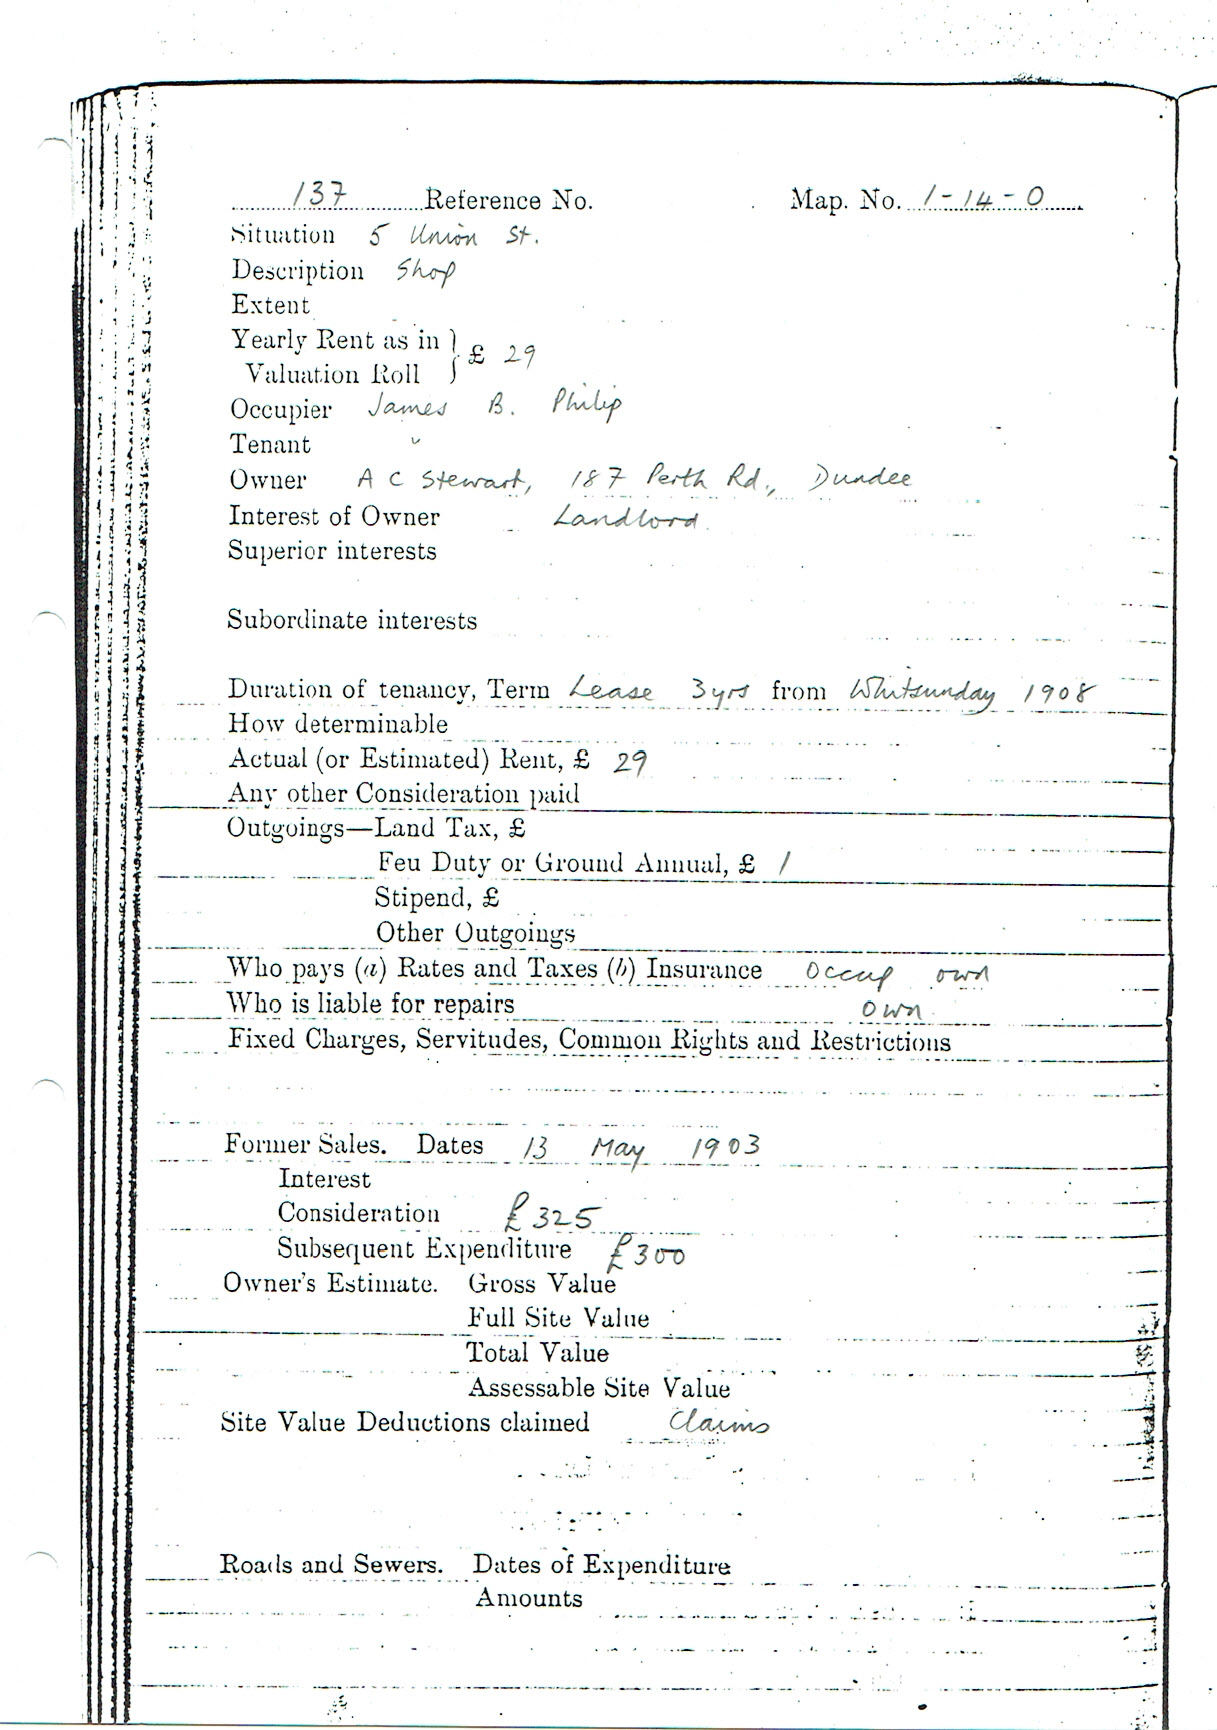 137 Reference No. Map. No. 1-14-0
Situation 5 Union St.
Description Shop
Extent
Yearly Rent as in
Valuation Roll } £ 29
Occupier James B. Philip
Tenant "
Owner A C Stewart, 187 Perth Rd., Dundee
Interest of Owner Landlord
Superior interests
Subordinate interests
Duration of tenancy, Term Lease 3 yrs from Whitsunday 1908
How determinable
Actual (or Estimated) Rent, £ 29
Any other Consideration paid
Outgoings—Land Tax, £
Feu Duty or Ground Annual, £ 1
Stipend, £
Other Outgoings
Who pays (a) Rates and Taxes (b) Insurance Occup own
Who is liable for repairs own
Fixed Charges, Servitudes, Common Rights and Restrictions
Former Sales. Dates 13 May 1903
Interest
Consideration £325
Subsequent Expenditure £300
Owner's Estimate. Gross Value
Full Site Value
Total Value
Assessable Site Value
Site Value Deductions claimed Claims
Roads and Sewers. Dates of Expenditure
Amounts